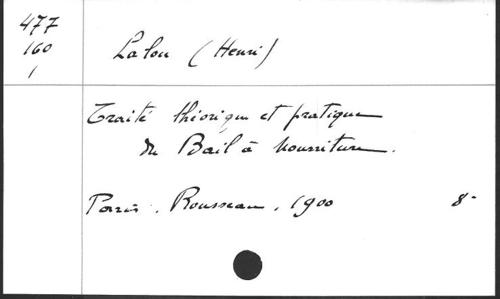 477
160
1
Lalou (Henri)
Traité théorique et pratique
du Bail à Nourriture.
Paris. Rousseau. 1900 8-